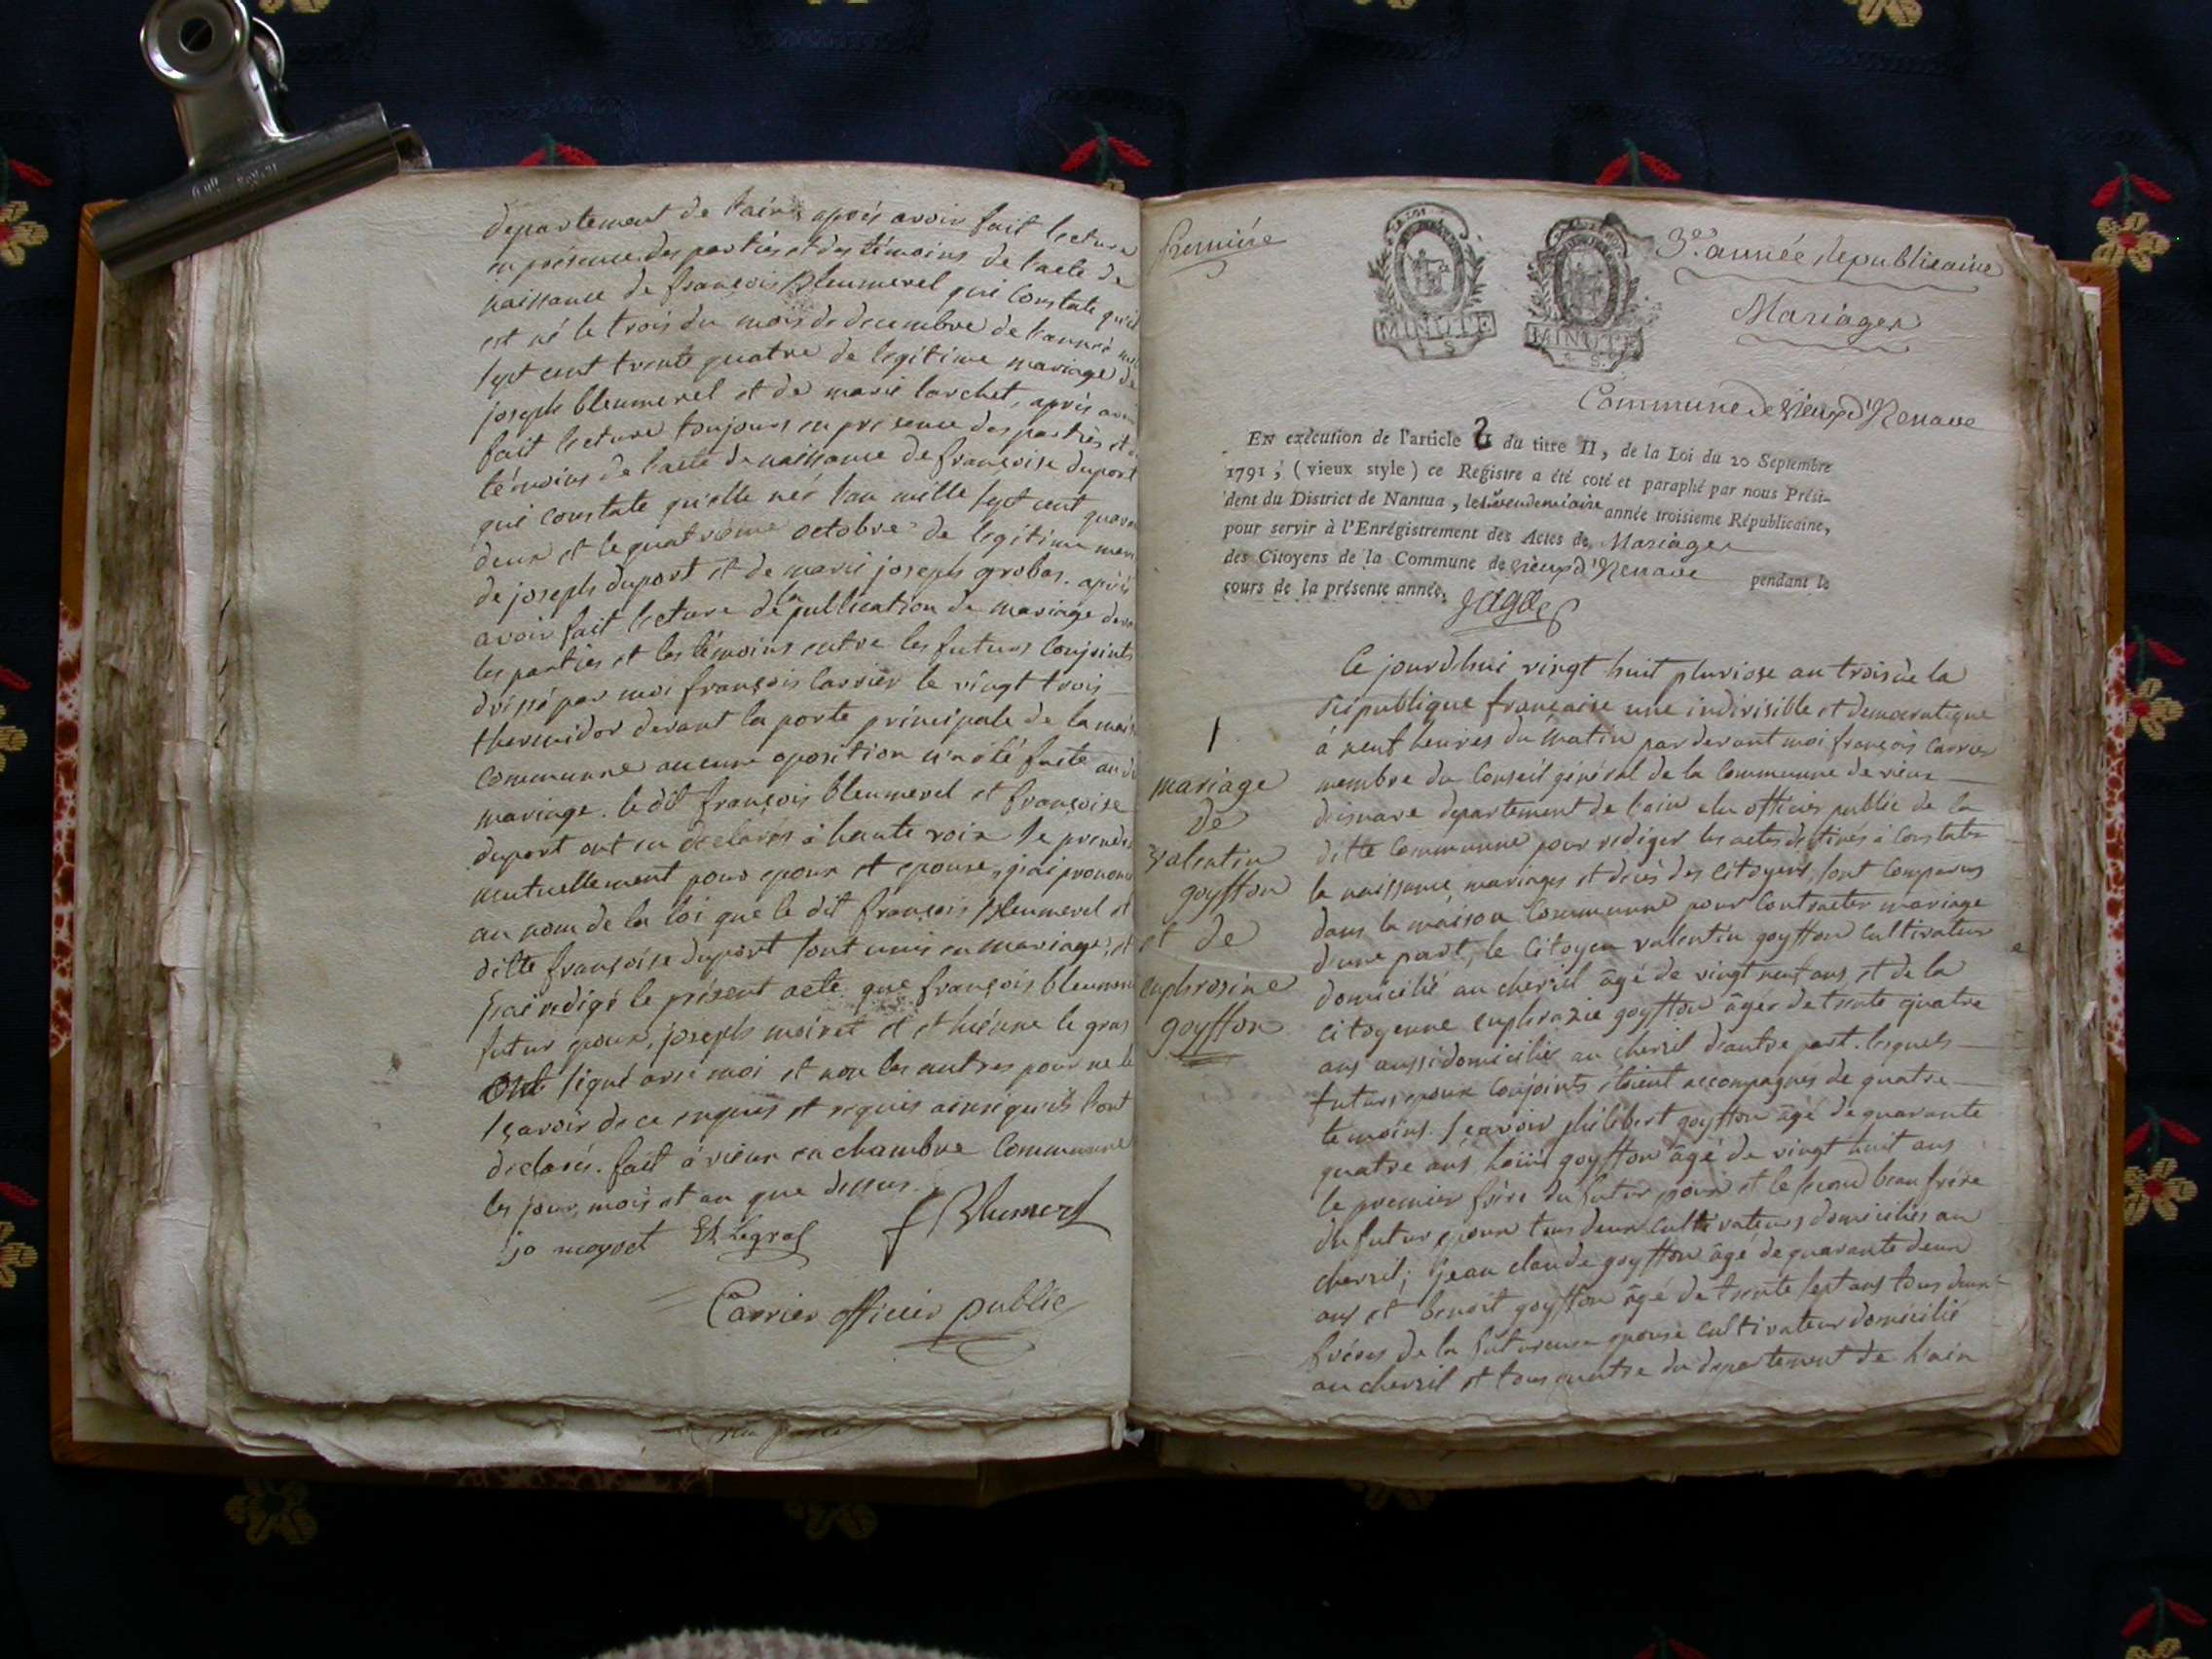 departement de l'ain, après avoir fait lecture
en présence des parties et des témoins de l'acte de
naissance de françois Bleumerel qui constate qu'il
est né le trois du mois de decembre de l'année
sept cent trente quatre de legitime mariage de
joseph bleumerel et de marie larchet, après
fait lecture toujours en presence des parties et
témoins de l'acte de naissance de françoise duport
qui constate qu'elle née l'an mille sept cent
deux et le quatrième octobre de legitime
de joseph duport et de marie joseph grobas. après
avoir fait lecture de la publication de mariage
les parties et les témoins entre les futurs conjoints
dréssé par moi françois Carrier le vingt trois
thermidor devant la porte principale de la
communne aucune oposition n'a été faite
mariage. le dit françois bleumerel et françoise
duport ont declarés à haute voix se prendre
mutuellement pour epoux et epouse, j'ai
au nom de la loi que le dit françois bleumerel et
ditte françoise duport sont unis en mariage, et
j'ai redigé le présent acte que françois
futur epoux, joseph moiret et ethiénne le gras
ont signé avec moi et non les autres pour ne le
sçavoir de ce enquis et requis ainsi qu'ils l'ont
declarés. fait à vieux en chambre communne
les jour, mois et an que dessus.
jo moyret Et Legras f Blumerel
Carrier officier public
Première
3e. année Republicaine
LA LOI
MINUTE
MINUTE
Mariages
Commune de Vieux d'Izenave
EN exécution de l'article 2 du titre II, de la Loi du 20 Septembre
1791, (vieux style) ce Registre a été coté et paraphé par nous Prési-
dent du District de Nantua, le vendemiaire année troisieme Républicaine,
pour servir à l'Enrégistrement des Actes de Mariages
des Citoyens de la Commune de Vieux d'Izenave pendant le
cours de la présente année.
1
mariage
de
valentin
goyffon
et de
euphrosine
goyffon
Ce jourd'hui vingt huit pluviose an trois de la
République française une indivisible et democratique
à neuf heures du matin par devant moi françois Carrier
membre du Conseil général de la Communne de vieux
disenave departement de l'ain elu officier public de la
ditte Communne pour rediger les actes destinés à constater
la naissance, mariages et decès des Citoyens, sont comparus
dans la maison Communne pour Contracter mariage
d'une part, le Citoyen valentin goyffon cultivateur
domicilié au chevril âgé de vingt neuf ans et de la
citoyenne euphrazie goyffon âgée de trente quatre
ans aussi domiciliée au chevril d'autre part. lesquels
futurs epoux conjoints étoient accompagnés de quatre
temoins. sçavoir philibert goyffon âgé de quarante
quatre ans, goyffon âgé de vingt huit ans
le premier frère du futur epoux et le second beau frére
du futur epoux tous deux cultivateurs domiciliés au
chevril; jean claude goyffon âgé de quarante deux
ans et benoit goyffon âgé de trente sept ans tous deux
fréres de la future epouse cultivateur domicilié
au chevril et tous quatre du departement de l'ain